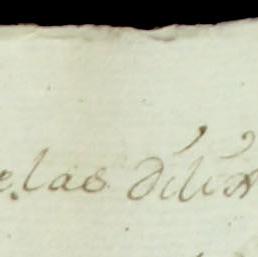 e las dilix